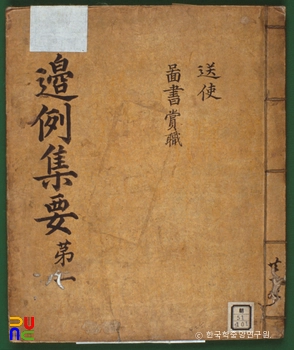 送使
圖書賞職
邊例集要
第一
©한국학중앙연구원